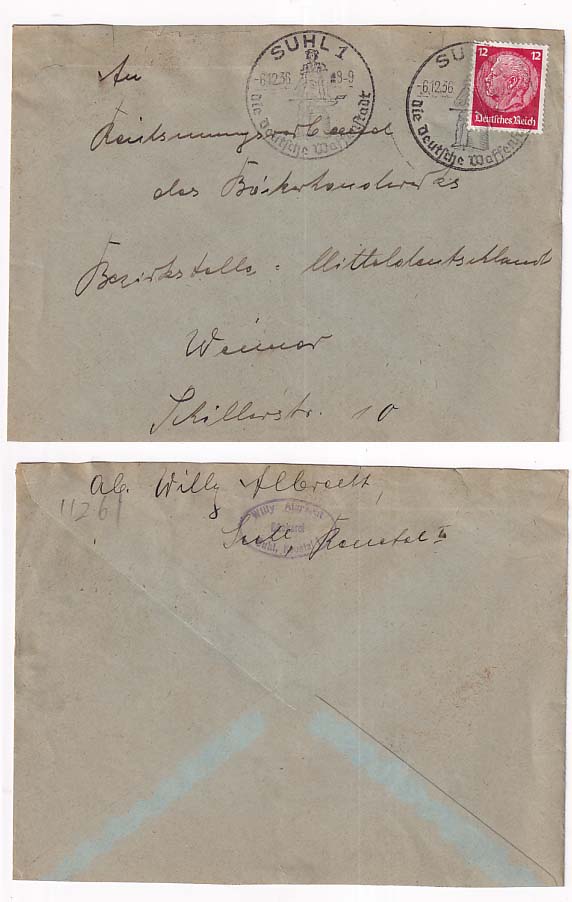 SUHL 1
-6.12.36 18-9
Die deutsche Waffenstadt
SUHL
-6.12.36
Die deutsche Waffens
12 12
Deutsches Reich
An
des Bäckerhandwerks
Bezirkstelle: Mitteldeutschland
Weimar
Schillerstr. 10
Ab. Willy Albrecht,
1126
Willy Albrecht
Bäckerei
Suhl,
Suhl,